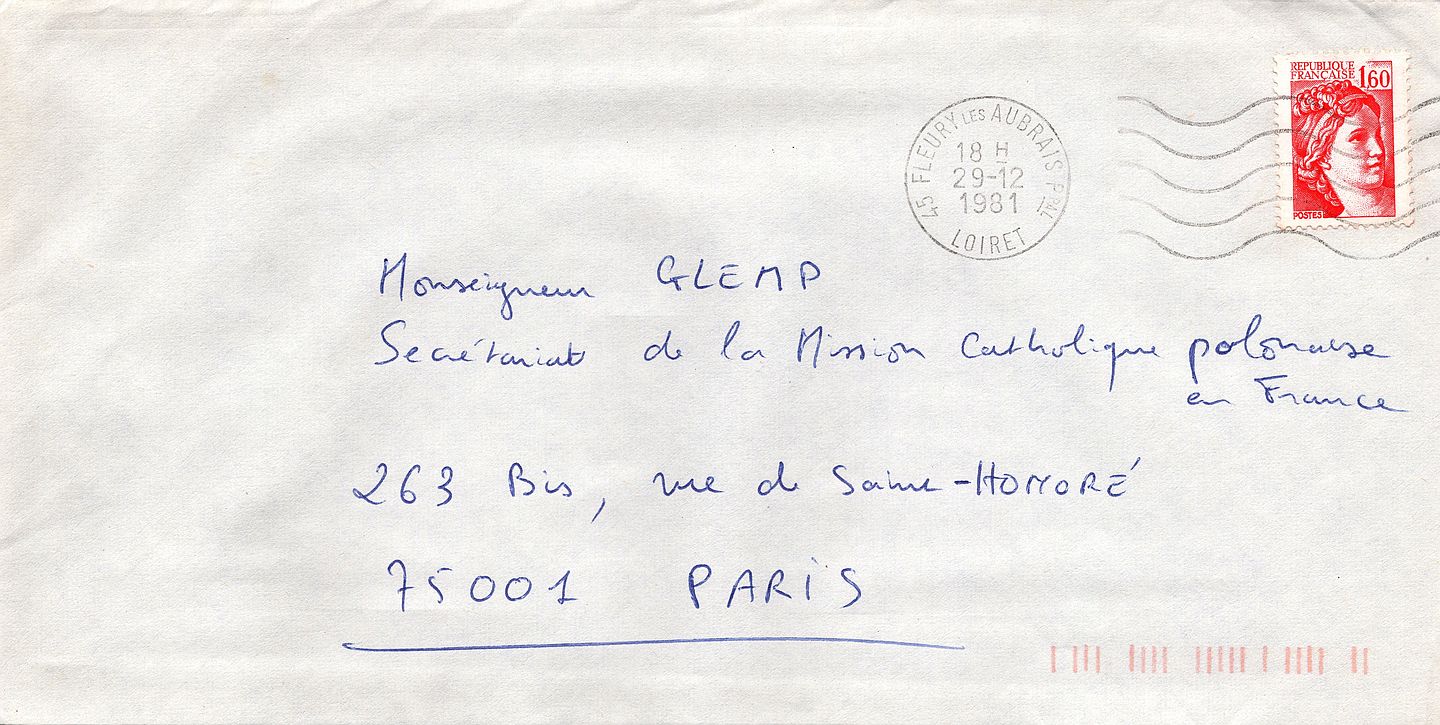 REPUBLIQUE
FRANÇAISE 1,60
POSTES
45 FLEURY LES AUBRAIS PPAL
18 H
29-12
1981
LOIRET
Monseigneur GLEMP
Secrétariat de la Mission Catholique polonaise
en France
263 Bis, rue de Saint-HONORÉ
75001 PARIS